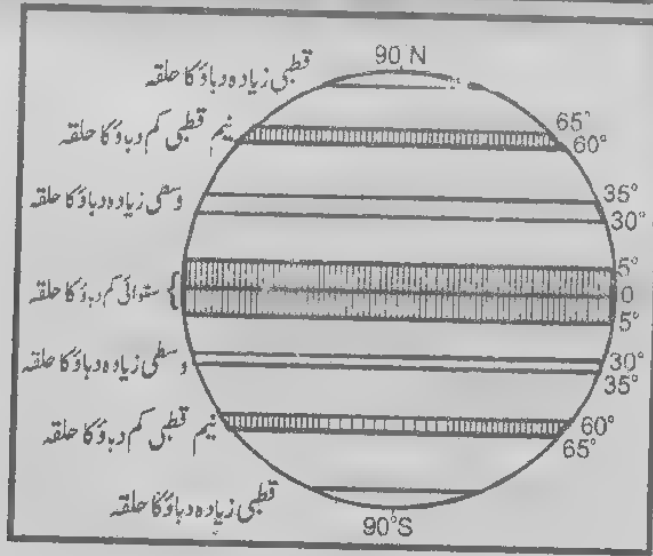 90°N
قطبی زیادہ دباؤ کا حلقہ
65°
نیم قطبی کم دباؤ کا حلقہ
60°
35°
وسطی زیادہ دباؤ کا حلقہ
30°
5°
ستوائی کم دباؤ کا حلقہ
0
5°
30°
وسطی زیادہ دباؤ کا حلقہ
35°
60°
نیم قطبی کم دباؤ کا حلقہ
65°
قطبی زیادہ دباؤ کا حلقہ
90°S